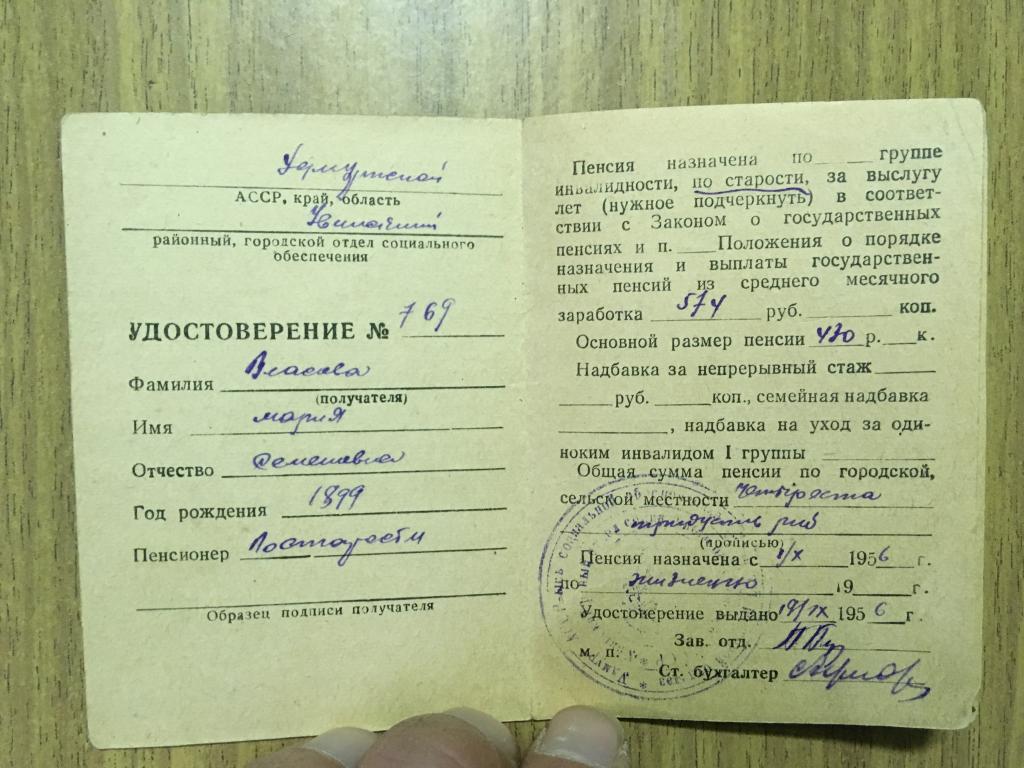 Удмуртской
АССР, край, область
районный, городской отдел социального
обеспечения
УДОСТОВЕРЕНИЕ № 769
Фамилия Власова
(получателя)
Имя Мария
Отчество Семеновна
Год рождения 1899
Пенсионер По старости
Образец подписи получателя
Пенсия назначена по ___ группе
инвалидности, по старости, за выслугу
лет (нужное подчеркнуть) в соответ-
ствии с Законом о государственных
пенсиях и п. ___ Положения о порядке
назначения и выплаты государствен-
ных пенсий из среднего месячного
заработка 574 руб. ___ коп.
Основной размер пенсии 430 р. ___ к.
Надбавка за непрерывный стаж ___
___ руб. ___ коп., семейная надбавка
___, надбавка на уход за оди-
ноким инвалидом I группы ___
Общая сумма пенсии по городской,
сельской местности Четыреста
тридцать руб
(прописью)
Пенсия назначена с 1/X 1956 г.
по жизненно 19 ___ г.
Удостоверение выдано 19/IX 1956 г.
Зав. отд.
м. п.
Ст. бухгалтер